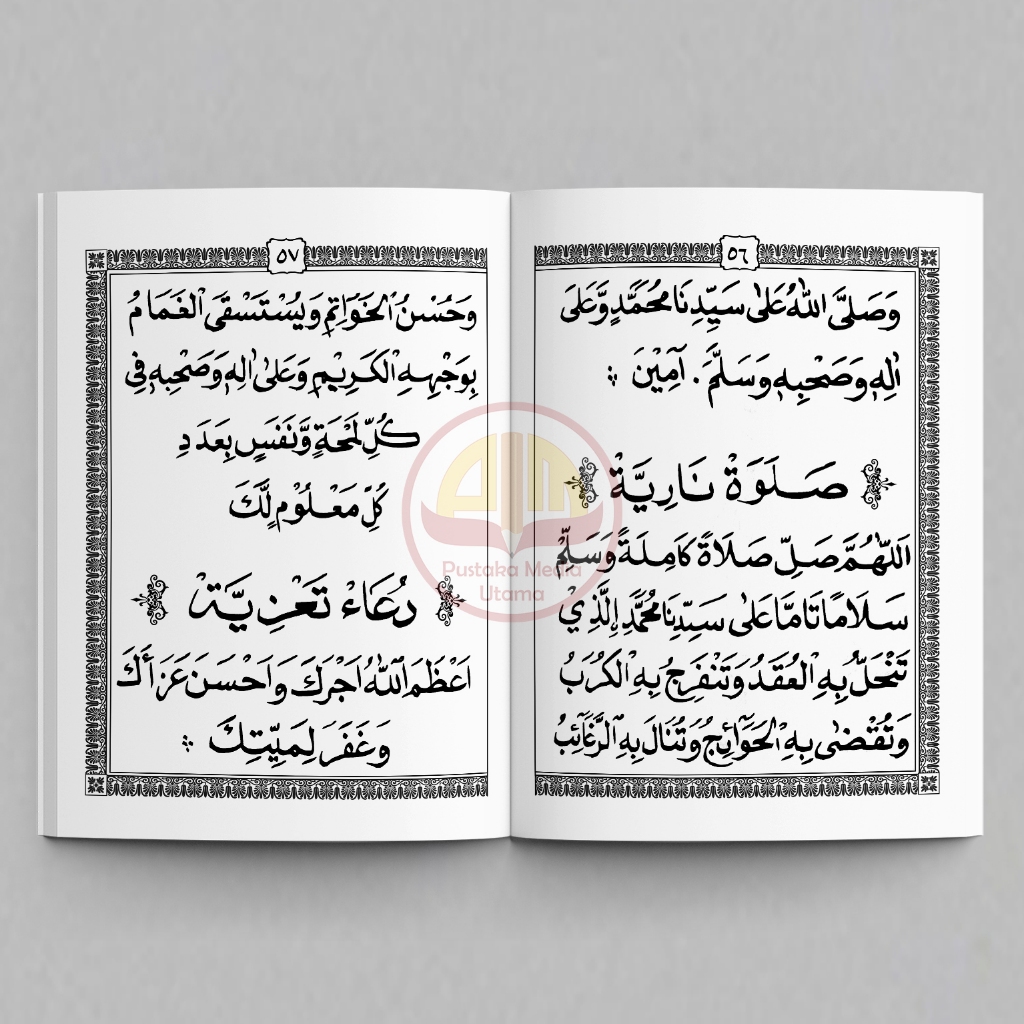 ٥٦
وَصَلَّى اللّٰهُ عَلٰى سَيِّدِنَا مُحَمَّدٍ وَّعَلَى
اٰلِهٖ وَصَحْبِهٖ وَسَلَّمَ. آمِيْنَ
صَلَوَةْ نَارِيَّةْ
اَللّٰهُمَّ صَلِّ صَلَاةً كَامِلَةً وَسَلِّمْ
سَلَامًا تَامًّا عَلٰى سَيِّدِنَا مُحَمَّدِ اِلَّذِيْ
تَنْحَلُّ بِهِ الْعُقَدُ وَتَنْفَرِجُ بِهِ الْكُرَبُ
وَتُقْضٰى بِهِ الْحَوَآئِجُ وَتُنَالُ بِهِ الرَّغَآئِبُ
٥٧
وَحُسْنُ الْخَوَاتِمِ وَيُسْتَسْقَى الْغَمَامُ
بِوَجْهِهِ الْكَرِيْمِ وَعَلٰى اٰلِهٖ وَصَحْبِهٖ فِى
كُلِّ لَمْحَةٍ وَّنَفَسٍ بِعَدَدِ
كُلِّ مَعْلُوْمٍ لَّكَ
دُعَاءْ تَعْزِيَّةْ
اَعْظَمَ اللّٰهُ اَجْرَكَ وَاَحْسَنَ عَزَأَكَ
وَغَفَرَ لِمَيِّتِكَ
Pustaka Media
Utama